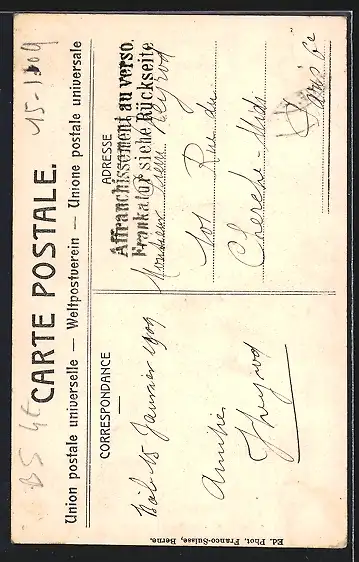 BS 4E
15-1-09
CARTE POSTALE.
Union postale universelle — Weltpostverein — Unione postale universale
CORRESPONDANCE
Bâle 15 Janvier 1909
Amitiés
J Heyrod
ADRESSE
Affranchissement au verso.
Frankatur siehe Rückseite
Monsieur Heyrod
101 Rue du
Cherche-Midi
Paris 6e
Ed. Phot. Franco-Suisse, Berne.